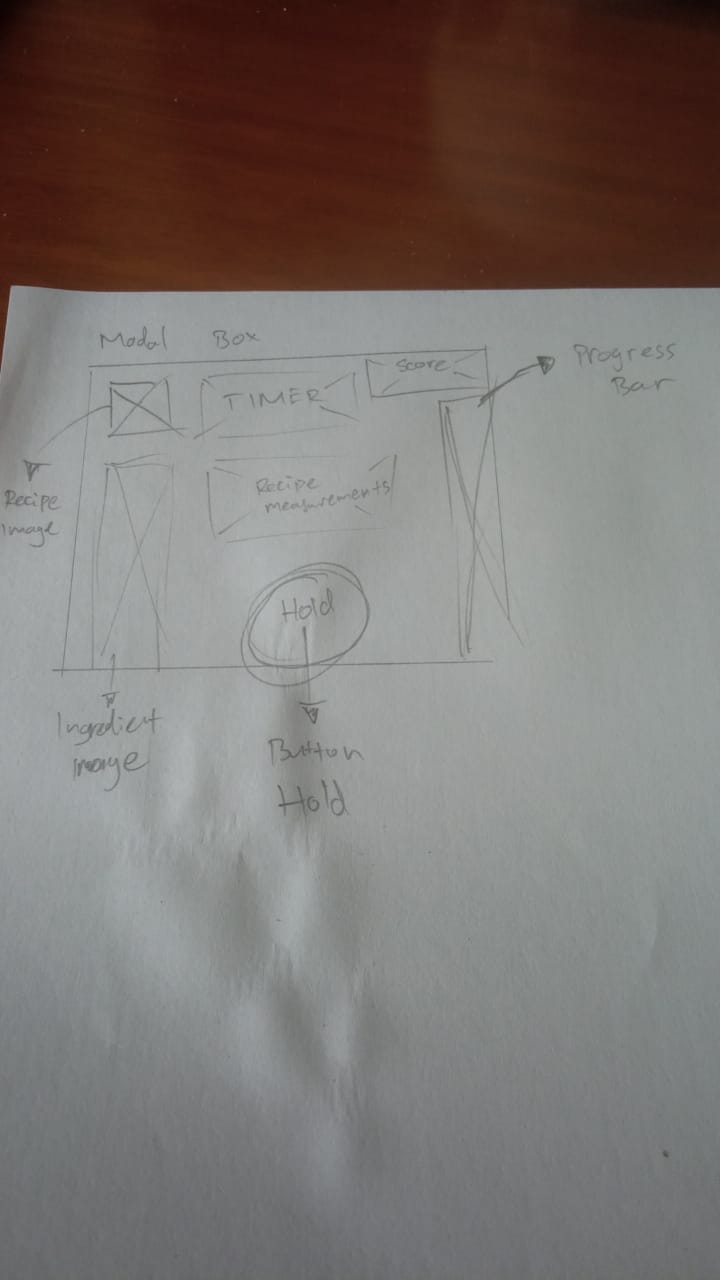 Modal Box
Score
TIMER
Progress
Bar
Recipe
image
Recipe
measurements
Hold
Ingredient
image
Button
Hold